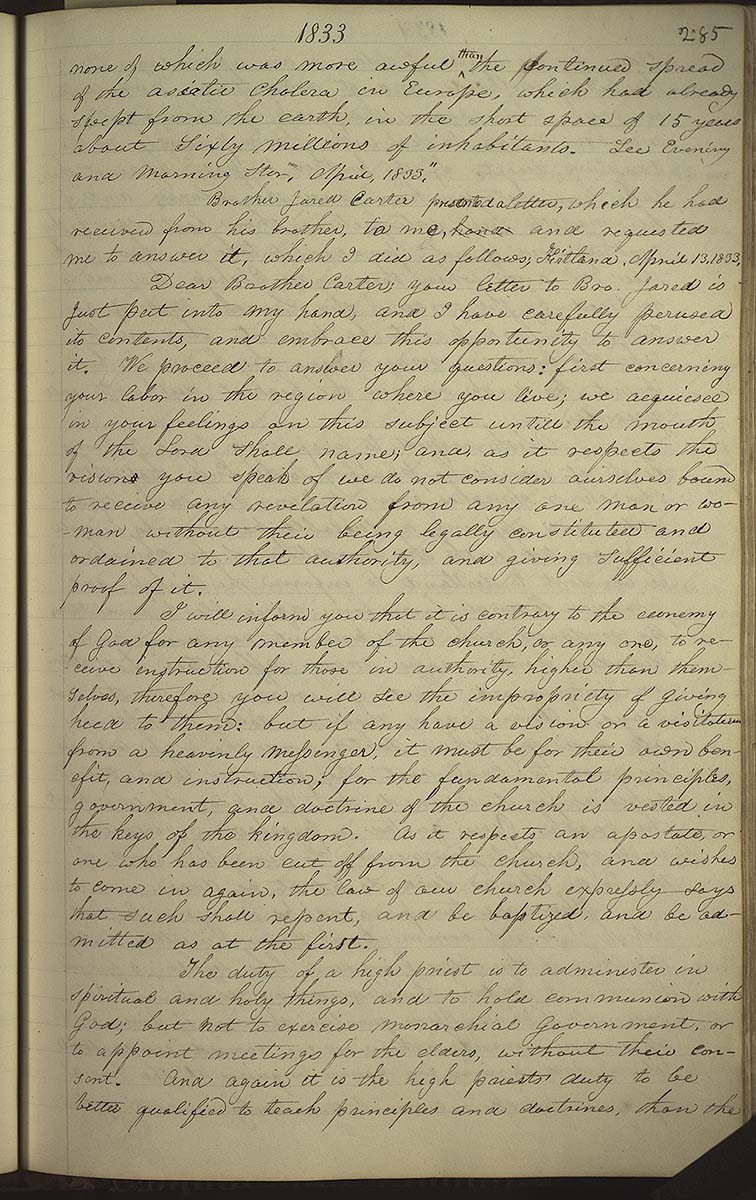 1833 285
none of which was more awful than the continued spread
of the asiatic Cholera in Europe, which had already
swept from the earth, in the short space of 15 years
about Sixty millions of inhabitants. See Evening
and Morning Star, April, 1833."
Brother Jared Carter presented a letter, which he had
received from his brother, to me, hand and requested
me to answer it, which I did as follows; Kirtland, April 13, 1833,
Dear Brother Carter; your letter to Bro. Jared is
Just put into my hand, and I have carefully perused
its contents, and embrace this opportunity to answer
it. We proceed to answer your questions: first concerning
your labor in the region where you live; we acquiesce
in your feelings on this subject untill the mouth
of the Lord shall name; and, as it respects the
visions you speak of we do not consider ourselves bound
to receive any revelation from any one man or wo-
-man without their being legally constituted and
ordained to that authority, and giving sufficient
proof of it.
I will inform you that it is contrary to the economy
of God for any member of the church, or any one, to re-
-ceive instruction for those in authority, higher than them-
selves, therefore you will see the impropriety of giving
heed to them: but if any have a vision or a visitation
from a heavenly messenger, it must be for their own ben-
efit, and instruction; for the fundamental principles,
government, and doctrine of the church is vested in
the keys of the kingdom. As it respects an apostate, or
one who has been cut off from the church, and wishes
to come in again, the law of our church expressly says
that such shall repent, and be baptized, and be ad-
mitted as at the first.
The duty of a high priest is to administer in
spiritual and holy things, and to hold communion with
God; but not to exercise monarchial government, or
to appoint meetings for the elders, without their con-
sent. And again it is the high priests duty to be
better qualified to teach principles and doctrines, than the